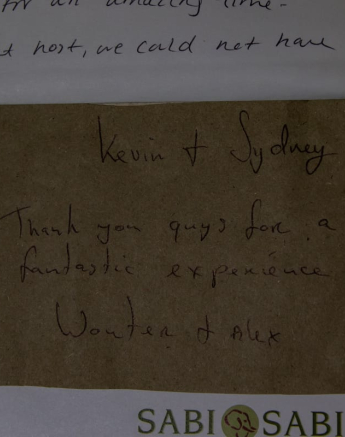 for an amazing time-
t host, we could not have
Kevin & Sydney
Thank you guys for a
fantastic experience
Wouter & Alex
SABI SABI